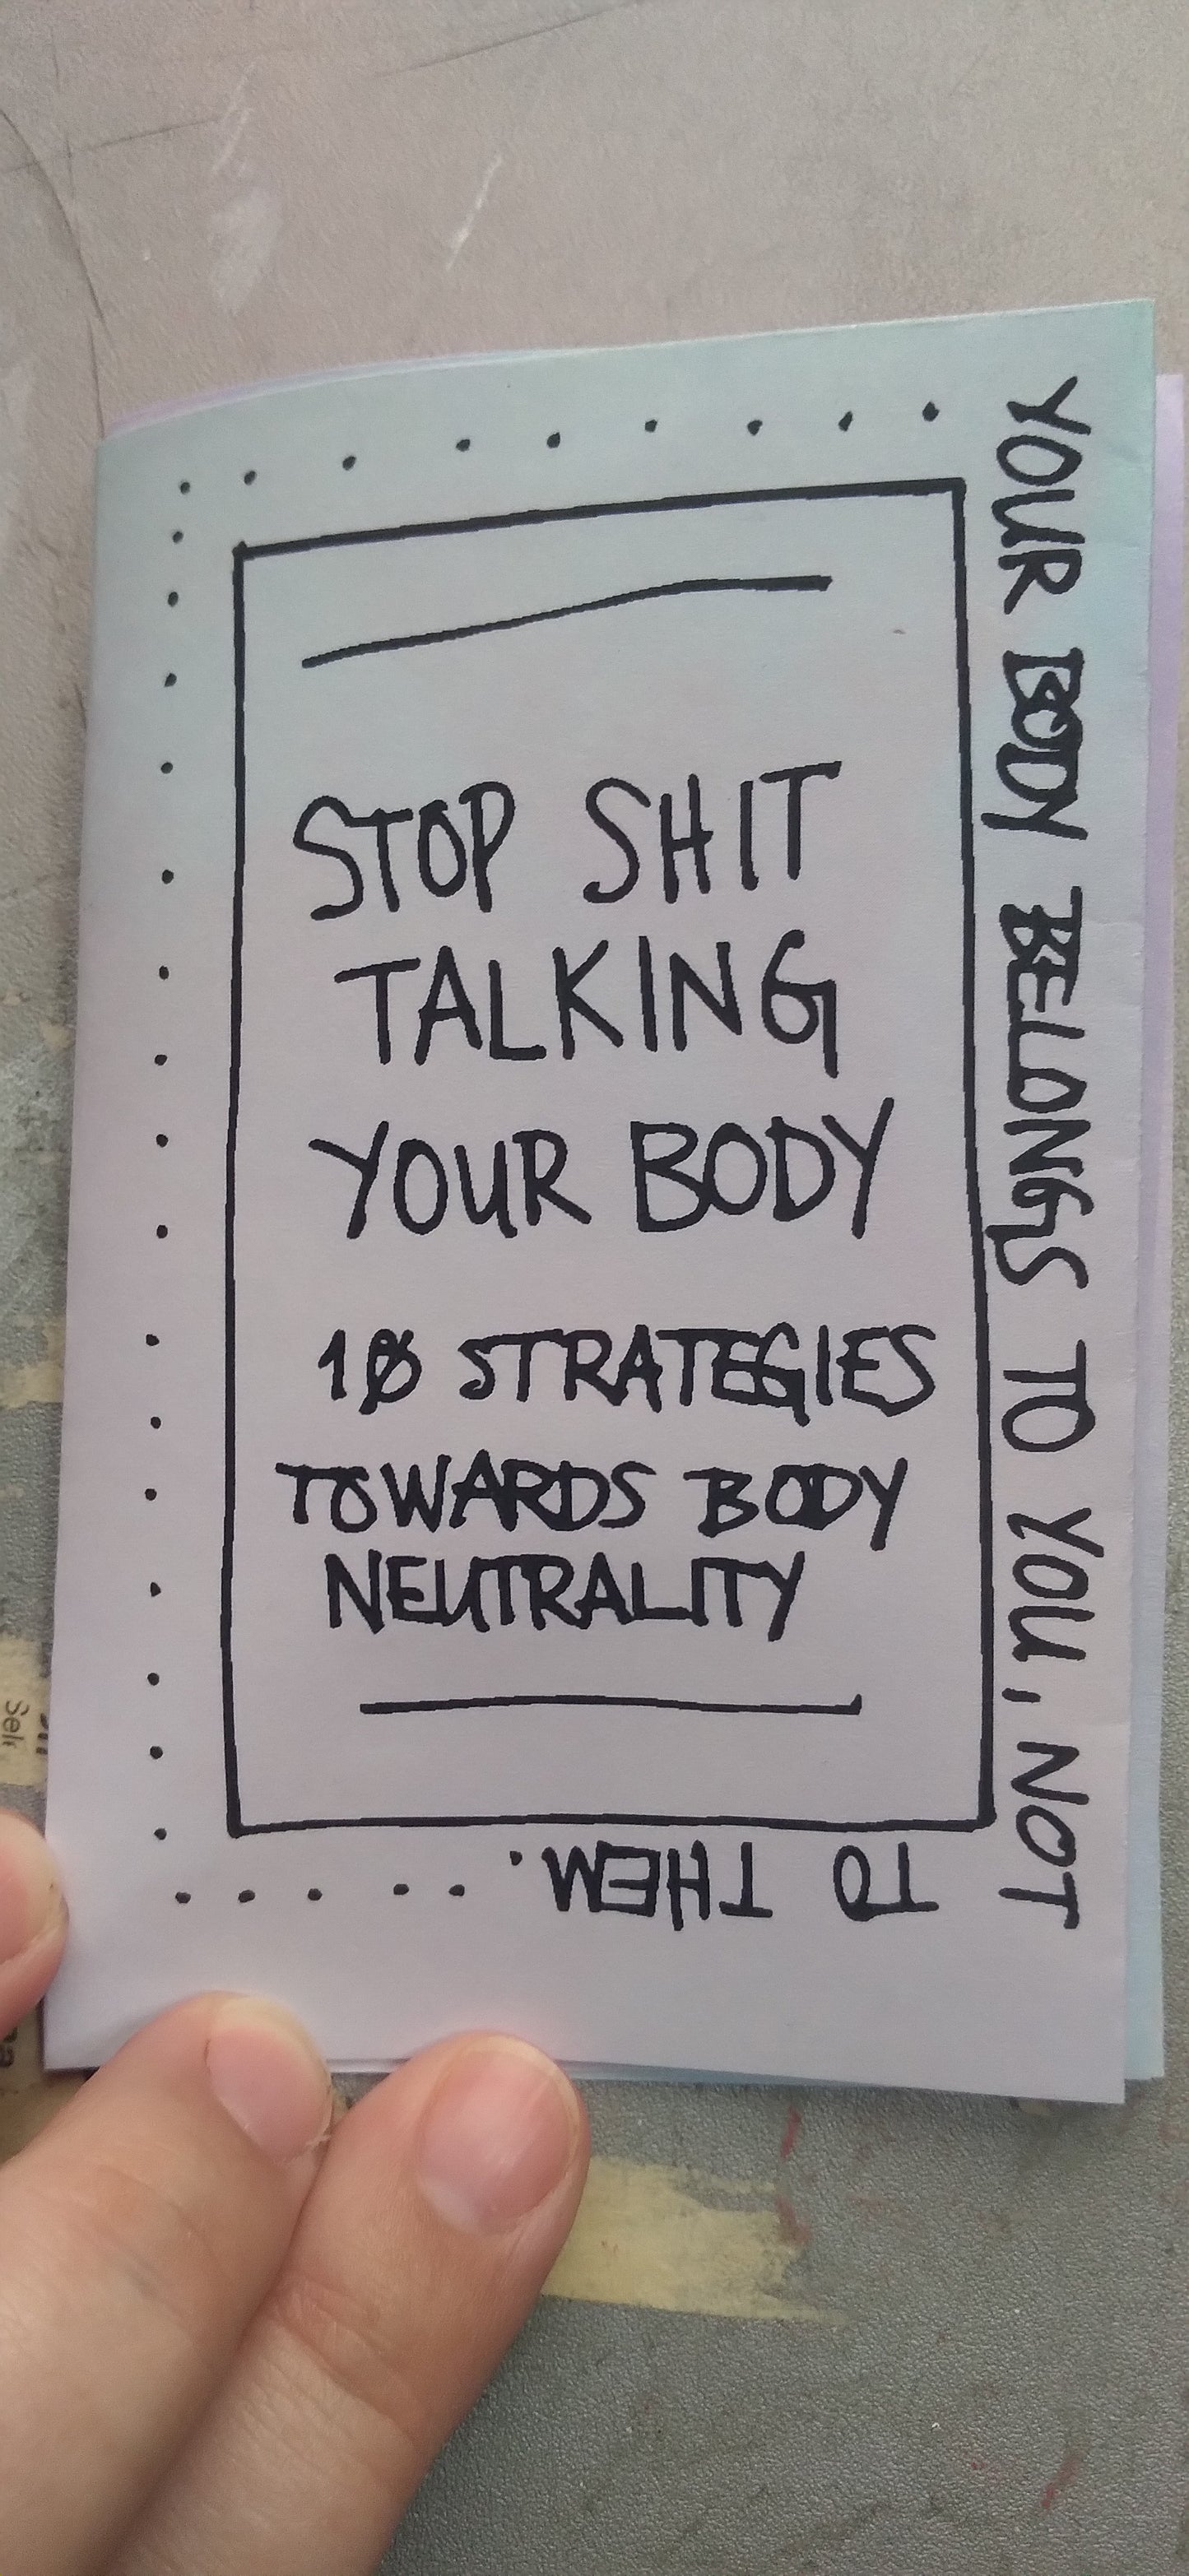 STOP SHIT
TALKING
YOUR BODY
10 STRATEGIES
TOWARDS BODY
NEUTRALITY
YOUR BODY BELONGS TO YOU, NOT
TO THEM.